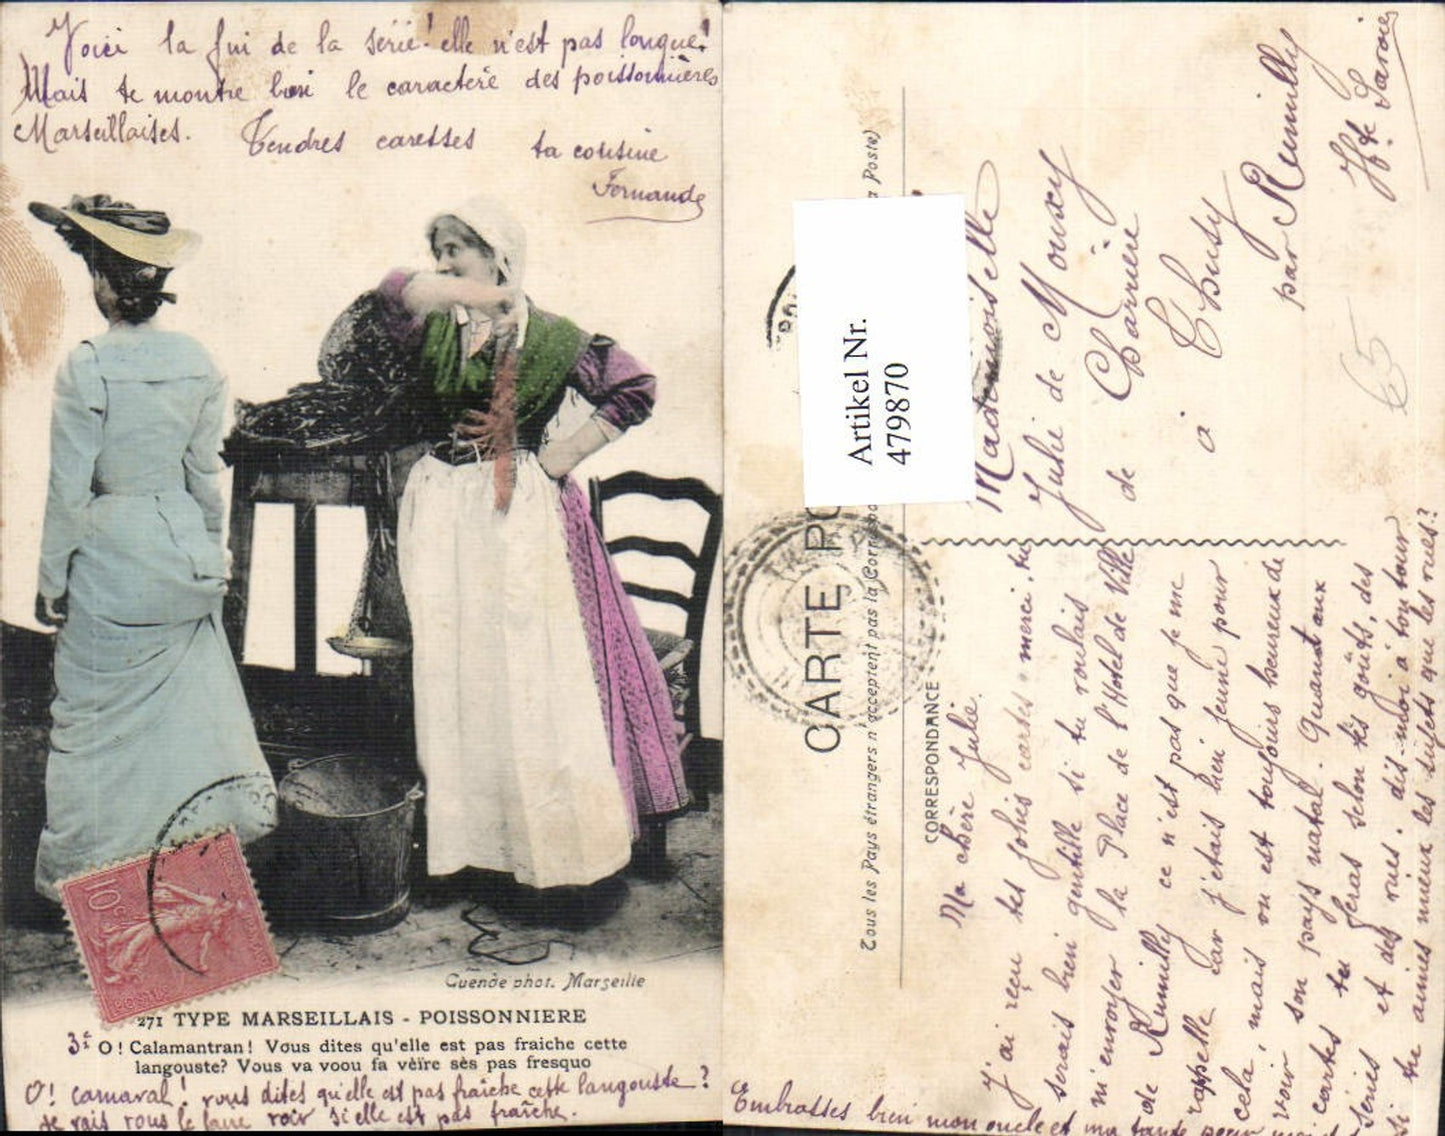 Voici la fin de la série! elle n'est pas longue!
Mais te montre bien le caractère des poissonnières
Marseillaises. Tendres caresses ta cousine
Fernande
10c
POSTES
Guende phot. Marseille
271 TYPE MARSEILLAIS - POISSONNIERE
3e O! Calamantran! Vous dites qu'elle est pas fraiche cette
langouste? Vous va voou fa vèire sès pas fresquo
O! carnaval! vous dites qu'elle est pas fraîche cette langouste?
je vais vous le faire voir si elle est pas fraîche.
CARTE PO
Tous les Pays étrangers n'acceptent pas la Corres a Poste)
CORRESPONDANCE
Artikel Nr.
479870
Mademoiselle
Julie de Mouxy
de Charrière
à Thusy
par Rumilly
Hte Savoie
65
Ma chère Julie.
J'ai reçu tes jolies cartes merci, tu
serais bien gentille si tu voulais
m'envoyer la Place de l'Hotel de Ville
de Rumilly ce n'est pas que je me
rappelle car j'étais bien jeune pour
cela, mais on est toujours heureux de
voir son pays natal. Quant aux
cartes tu feras selon tes goûts, des
séries et des vues. dis-moi à ton tour
si tu aimes mieux les sujets que les vues?
Embrasses bien mon oncle et ma tante pour